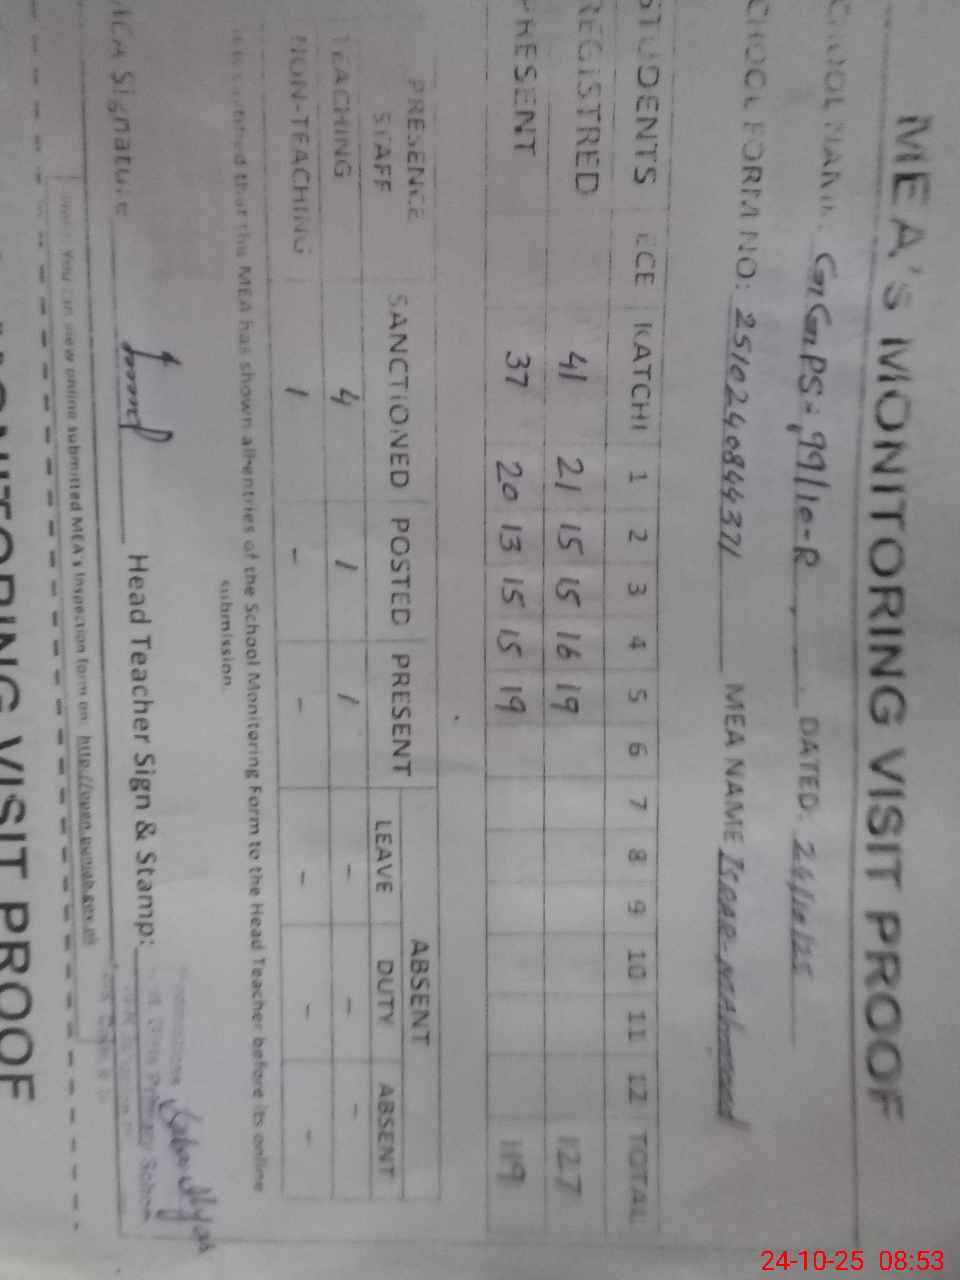 MEA's MONITORING VISIT PROOF
SCHOOL NAME: GGPS, 99/10-R DATED: 24/10/25
SCHOOL FORM NO: 2510240844371 MEA NAME
STUDENTS ECE KATCHI 1 2 3 4 5 6 7 8 9 10 11 12 TOTAL
REGISTRED 41 21 15 15 16 19 127
PRESENT 37 20 13 15 15 19 119
PRESENCE STAFF SANCTIONED POSTED PRESENT ABSENT
LEAVE DUTY ABSENT
TEACHING 4 1 1 - - -
NON-TEACHING 1 - - - - -
certified that this MEA has shown all entries of the School Monitoring Form to the Head Teacher before its online
submission.
MEA Signature Head Teacher Sign & Stamp:
Primary School
You can view online submitted MEA's Inspection form on: http://open.punjab.gov.pk
MONITORING VISIT PROOF
24-10-25 08:53